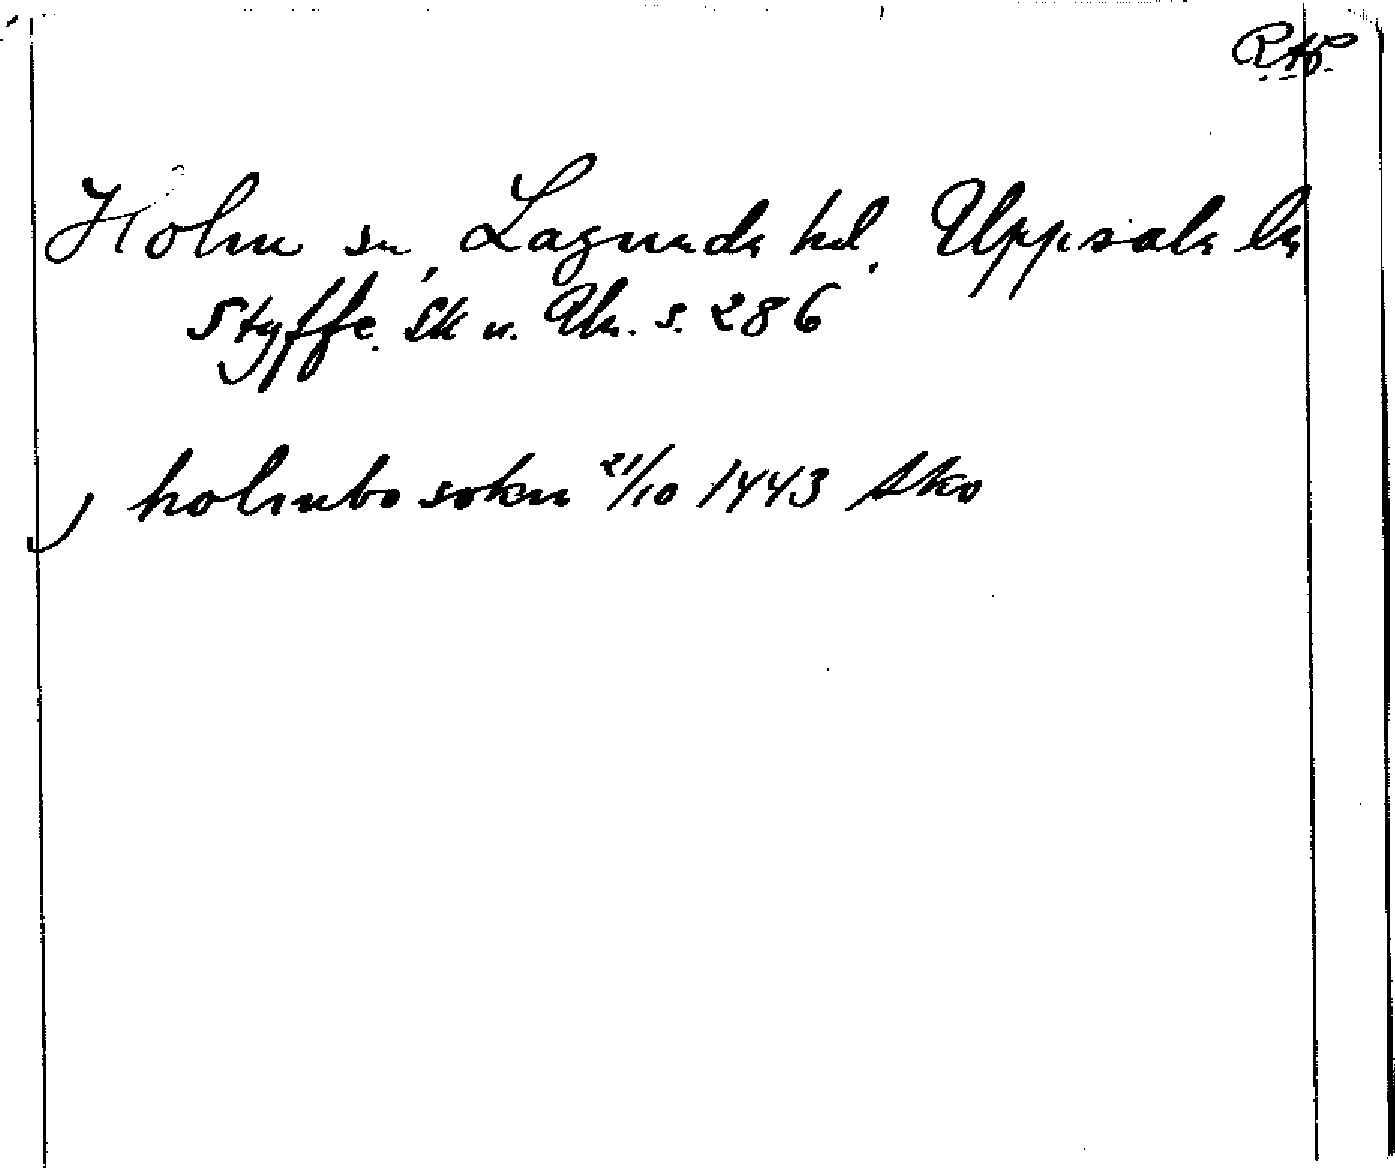 RAp
Holm sn, Lagunda hd. Uppsala län
Styffe. Sk u. Un. s. 286
j holmbo sokn 21/10 1443 Sko